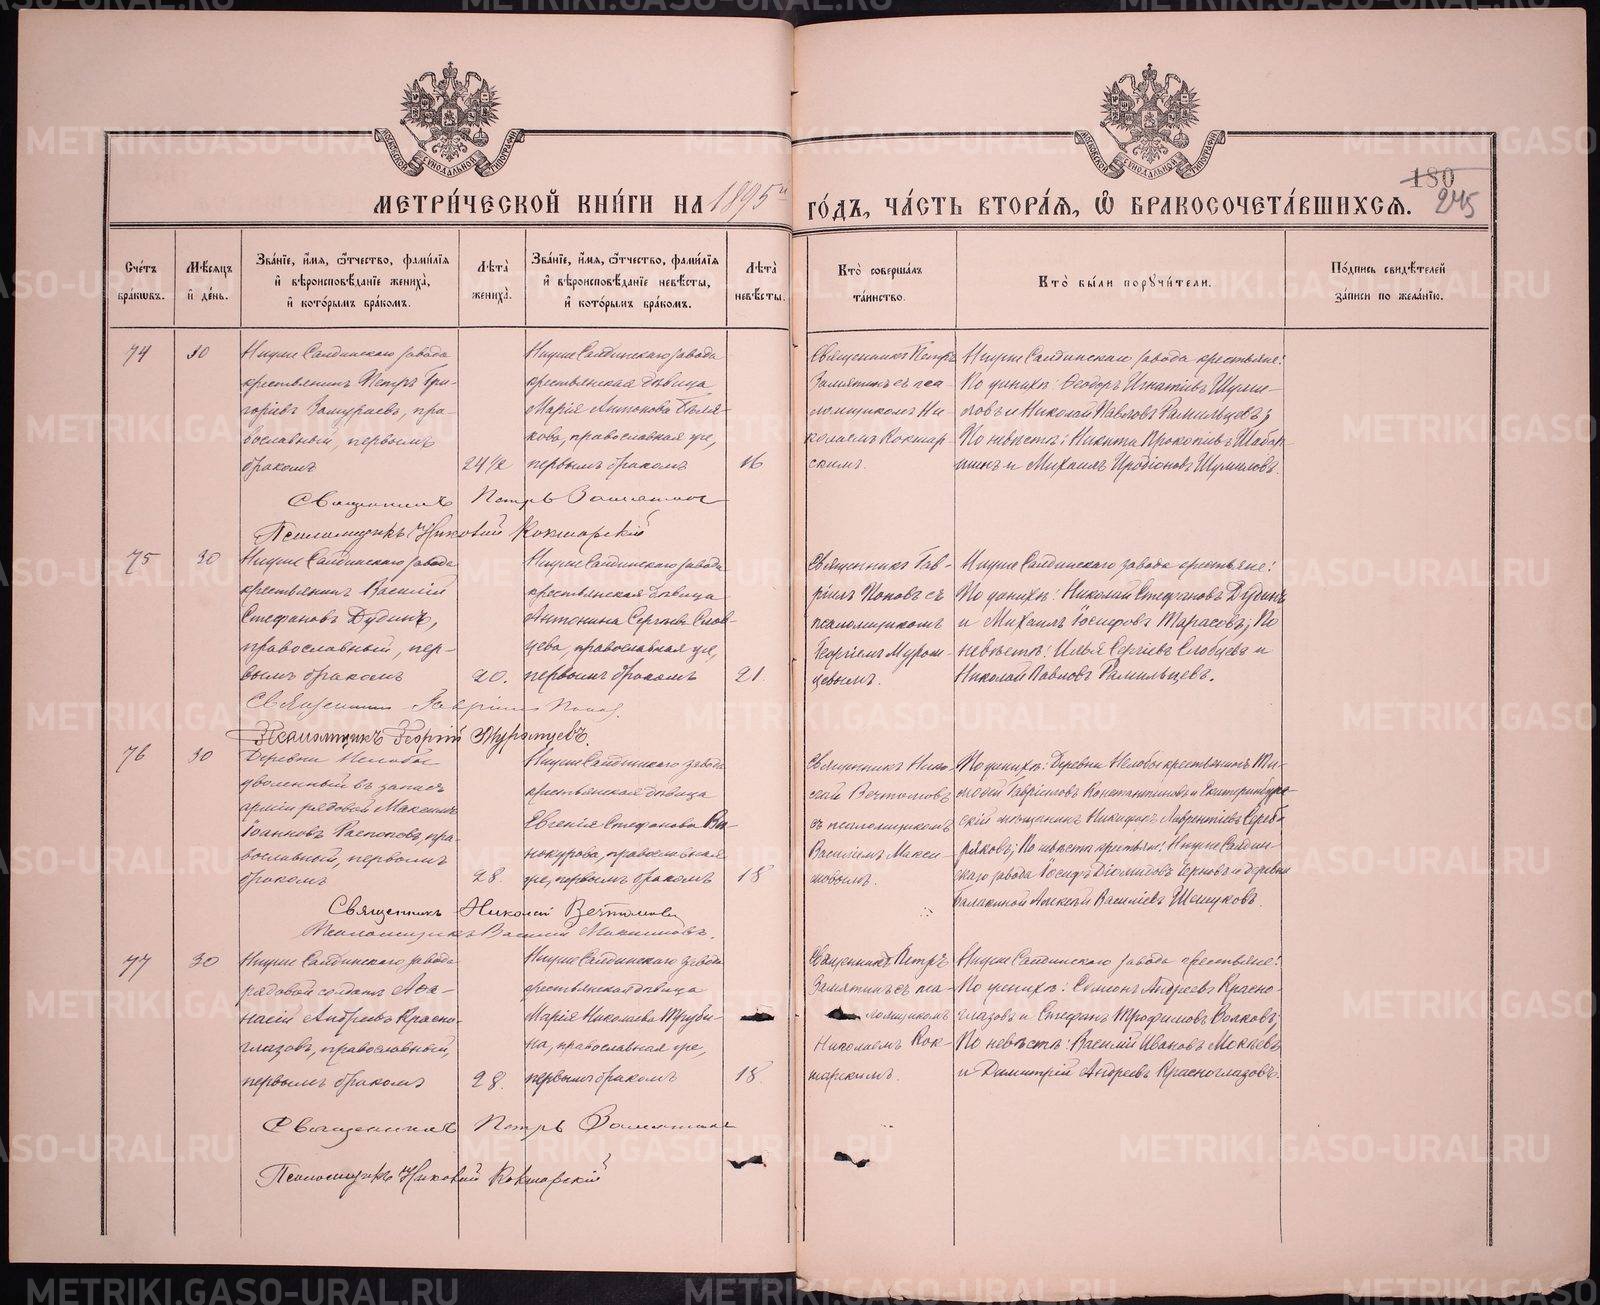 МОСКОВСКОЙ СѴНОДАЛЬНОЙ ТИПОГРАФІИ
МОСКОВСКОЙ СѴНОДАЛЬНОЙ ТИПОГРАФІИ
180
245
МЕТРИ́ЧЕСКОЙ КНИ́ГИ НА 1895й ГО́ДЪ, ЧА́СТЬ ВТОРА́Ѧ, Ѽ БРАКОСОЧЕТА́ВШИХСѦ.
Сче́тъ бра́кѡвъ.
Мѣ́сѧцъ и҆ де́нь.
Зва́нїе, и҆́мѧ, ѻ҆́тчество, фами́лїѧ и҆ вѣроисповѣ́данїе жениха̀, и҆ кото́рымъ бра́комъ.
Лѣ́та жениха̀.
Зва́нїе, и҆́мѧ, ѻ҆́тчество, фами́лїѧ и҆ вѣроисповѣ́данїе невѣ́сты, и҆ кото́рымъ бра́комъ.
Лѣ́та невѣ́сты.
Кто̀ соверша́лъ та́инство.
Кто̀ бы́ли порꙋчи́тели.
По́дпись свидѣ́телей за́писи по жела́нїю.
74
30
Нижне Салдинскаго завода
крестьянинъ Петръ Гри-
горіевъ Замураевъ, пра-
вославный, первымъ
бракомъ
24 1/2
Нижне Салдинскаго завода
крестьянская дѣвица
Марія Антонова Бѣля-
кова, православная же,
первымъ бракомъ
16
Священникъ Петръ
Замятинъ съ пса-
ломщикомъ Ни-
колаемъ Кокшар-
скимъ.
Нижне Салдинскаго завода крестьяне:
По женихѣ: Ѳеодоръ Игнатіевъ Шуми-
ловъ и Николай Павловъ Рамильцевъ;
По невѣстѣ: Никита Прокопіевъ
и Михаилъ Иродіоновъ Шумиловъ.
Священникъ Петръ Замятинъ
Псаломщикъ Николай Кокшарскій
75
30
Нижне Салдинскаго завода
крестьянинъ Василій
Стефановъ Дудинъ,
православный, пер-
вымъ бракомъ
20.
Нижне Салдинскаго завода
крестьянская дѣвица
Антонина Сергіева Слоб-
цева, православная же,
первымъ бракомъ
21.
Священникъ Гав-
ріилъ Поповъ съ
псаломщикомъ
Георгіемъ Муром-
цевымъ.
Нижне Салдинскаго завода крестьяне:
По женихѣ: Николай Стефановъ Дудинъ
и Михаилъ Іосифовъ Тарасовъ; По
невѣстѣ: Илья Сергіевъ Слобцевъ и
Николай Павловъ Рамильцевъ.
Священникъ Гавріилъ Поповъ.
Псаломщикъ Георгій Муромцевъ.
76
30
Деревни Нелобы
уволенный въ запасъ
арміи рядовой Максимъ
Іоанновъ Распоповъ, пра-
вославный, первымъ
бракомъ
28.
Нижне Салдинскаго завода
крестьянская дѣвица
Евгенія Стефанова Ви-
нокурова, православная
же, первымъ бракомъ
18
Священникъ Нико-
лай Вечтомовъ
съ псаломщикомъ
Василіемъ Макси-
мовымъ.
По женихѣ: Деревни Нелобы крестьянинъ Ти-
моѳей Гавріиловъ Константиновъ и Екатеринбург-
скій мѣщанинъ Никифоръ Лаврентіевъ Сереб-
ряковъ; По невѣстѣ крестьяне: Нижне Салдин-
скаго завода Іосифъ Діомидовъ Терновъ и деревни
Балакиной Алексѣй Василіевъ Шешуковъ.
Священникъ Николай Вечтомовъ
Псаломщикъ Василій Максимовъ.
77
30
Нижне Салдинскаго завода
рядовой солдатъ Аѳа-
насій Андреевъ Красно-
глазовъ, православный,
первымъ бракомъ
28.
Нижне Салдинскаго завода
крестьянская дѣвица
Марія Николаева
на, православная же,
первымъ бракомъ
18.
Священникъ Петръ
Замятинъ съ пса-
ломщикомъ
Николаемъ Кок-
шарскимъ.
Нижне Салдинскаго завода крестьяне:
По женихѣ: Симеонъ Андреевъ Красно-
глазовъ и Стефанъ Трофимовъ Волковъ;
По невѣстѣ: Василій Ивановъ Мокѣевъ
и Димитрій Андреевъ Красноглазовъ.
Священникъ Петръ Замятинъ
Псаломщикъ Николай Кокшарскій
METRIKI.GASO-URAL.RU